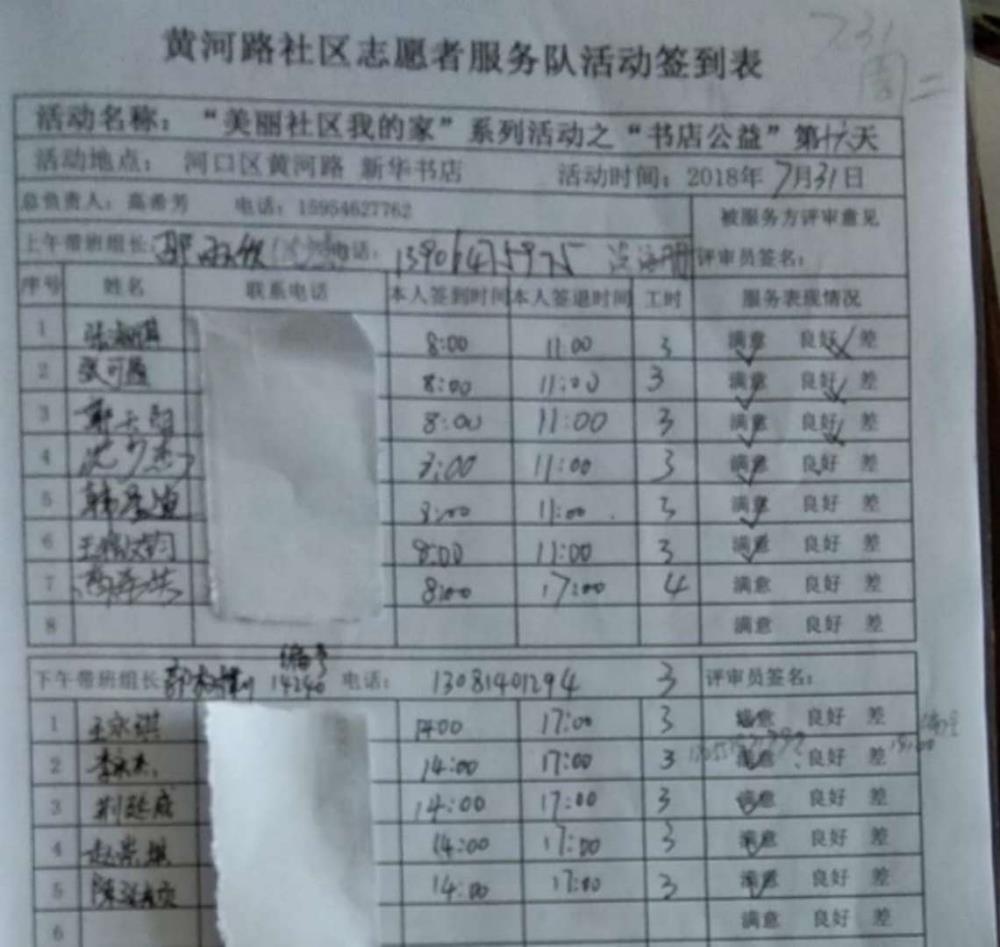 731
周二
黄河路社区志愿者服务队活动签到表
活动名称：“美丽社区我的家”系列活动之“书店公益”第十六天
活动地点： 河口区黄河路 新华书店 活动时间：2018年7月31日
总负责人：高希芳 电话：15954627762 被服务方评审意见
上午带班组长 电话：13906475975 评审员签名：
序号 姓名 联系电话 本人签到时间 本人签退时间 工时 服务表现情况
1 8:00 11:00 3 满意 良好 差
2 张可盈 8:00 11:00 3 满意 良好 差
3 8:00 11:00 3 满意 良好 差
4 8:00 11:00 3 满意 良好 差
5 8:00 11:00 3 满意 良好 差
6 8:00 11:00 3 满意 良好 差
7 8:00 17:00 4 满意 良好 差
8 满意 良好 差
编号
下午带班组长 14240 电话：13081401294 3 评审员签名：
1 王永琪 14:00 17:00 3 满意 良好 差
2 14:00 17:00 3 满意 良好 差
3 荆延庭 14:00 17:00 3 满意 良好 差
4 赵崇琪 14:00 17:00 3 满意 良好 差
5 14:00 17:00 3 满意 良好 差
6 满意 良好 差